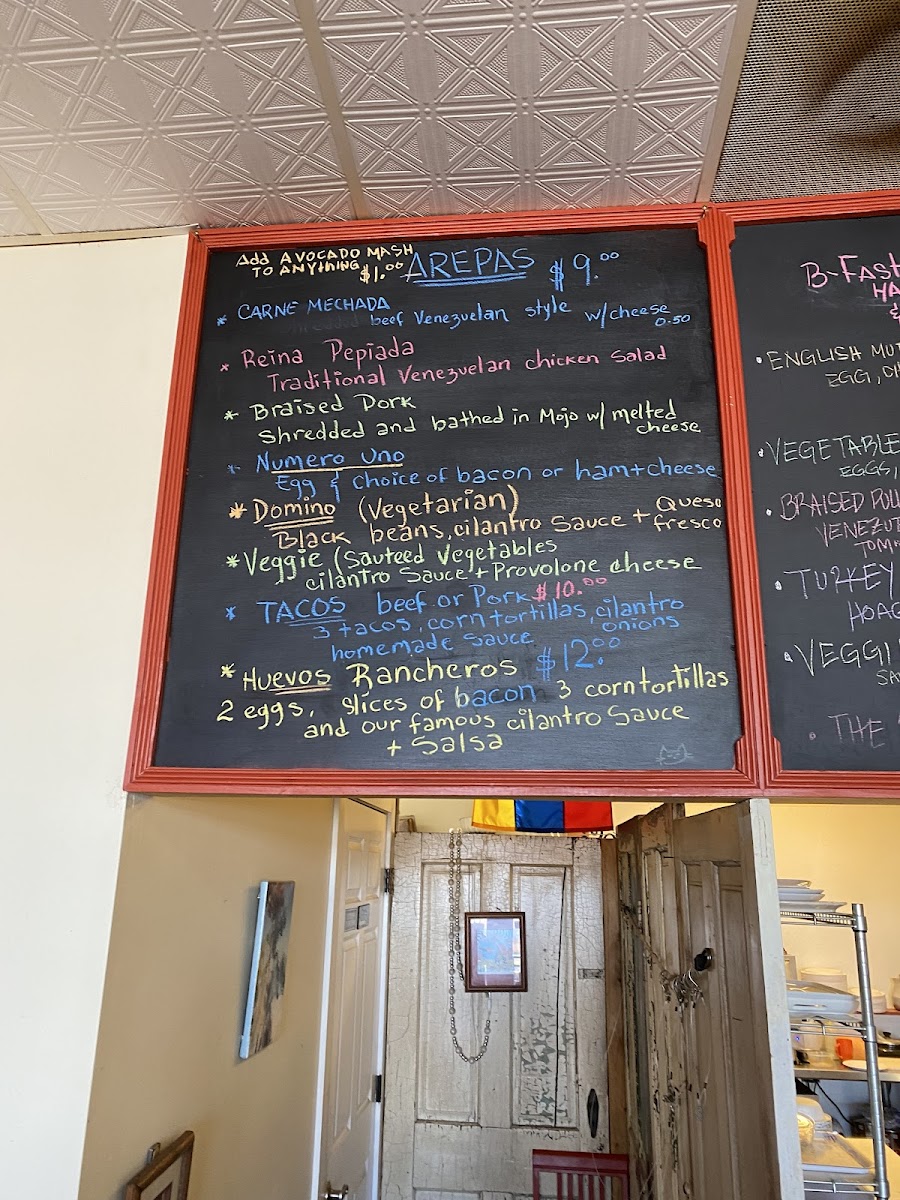 Add AVOCADO MASH
TO ANYTHING $1.00
AREPAS $9.00
* CARNE MECHADA
beef Venezuelan style w/cheese
0.50
* Reina Pepiada
Traditional Venezuelan chicken Salad
* Braised Pork
Shredded and bathed in Mojo w/ melted
cheese
* Numero Uno
Egg & choice of bacon or ham+cheese
* Domino (Vegetarian)
Black beans, cilantro Sauce + Queso
fresco
* Veggie (Sauteed Vegetables
cilantro Sauce + Provolone cheese
* TACOS beef or Pork $10.00
3 tacos, corn tortillas, cilantro
onions
homemade Sauce
* Huevos Rancheros $12.00
2 eggs, slices of bacon 3 corn tortillas
and our famous cilantro Sauce
+ Salsa
B-FAST
HA
&
• ENGLISH MU
EGG, CH
• VEGETABLE
EGGS,
• BRAISED
VENEZUE
TOM
• TURKEY
HOAG
• VEGGI
SA
• THE